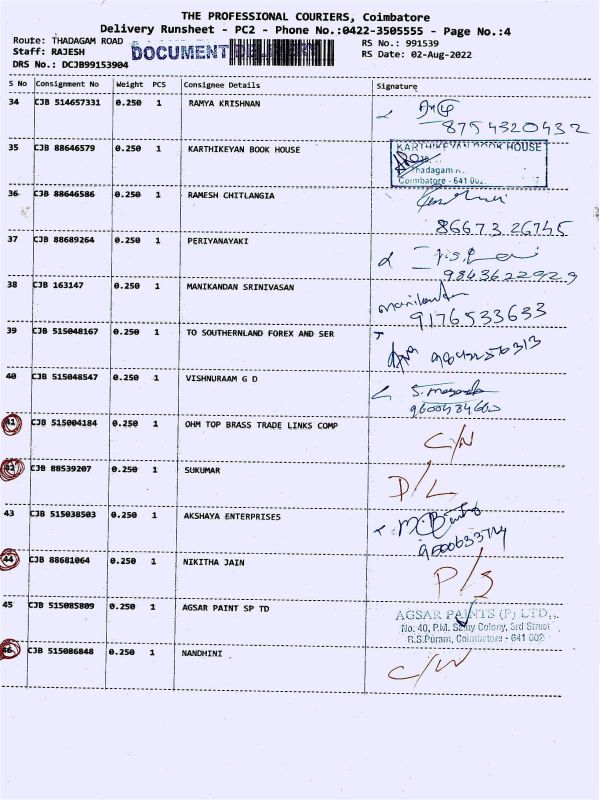 THE PROFESSIONAL COURIERS, Coimbatore
Delivery Runsheet - PC2 - Phone No.:0422-3505555 - Page No.:4
Route: THADAGAM ROAD
RS No.: 991539
Staff: RAJESH
DOCUMENT DELIVERY
RS Date: 02-Aug-2022
DRS No.: DCJB99153904
S No Consignment No Weight PCS Consignee Details Signature
34 CJB 514657331 0.250 1 RAMYA KRISHNAN
8754320432
35 CJB 88646579 0.250 1 KARTHIKEYAN BOOK HOUSE
KARTHIKEYAN BOOK HOUSE
Thadagam
Coimbatore - 641 002.
36 CJB 88646586 0.250 1 RAMESH CHITLANGIA
86673 26745
37 CJB 88689264 0.250 1 PERIYANAYAKI
9843622929
38 CJB 163147 0.250 1 MANIKANDAN SRINIVASAN
manikandan
9176533633
39 CJB 515048167 0.250 1 TO SOUTHERNLAND FOREX AND SER
40 CJB 515048547 0.250 1 VISHNURAAM G D
41 CJB 515004184 0.250 1 OHM TOP BRASS TRADE LINKS COMP
C/N
42 CJB 88539207 0.250 1 SUKUMAR
D/L
43 CJB 515038503 0.250 1 AKSHAYA ENTERPRISES
44 CJB 88681064 0.250 1 NIKITHA JAIN
P/S
45 CJB 515085809 0.250 1 AGSAR PAINT SP TD
AGSAR PAINTS (P) LTD.,
No. 40, P.M. Samy Colony, 3rd Street
R.S.Puram, Coimbatore - 641 002
46 CJB 515086848 0.250 1 NANDHINI